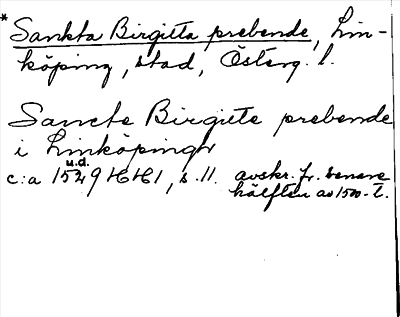 * Sankta Birgitta prebende, Lin-
köping, stad, Österg. l.
Sancte Birgitte prebende
i Linköping
u.d.
c:a 1529 HH1, s. 11. avskr. fr. senare
hälften av 1500-t.